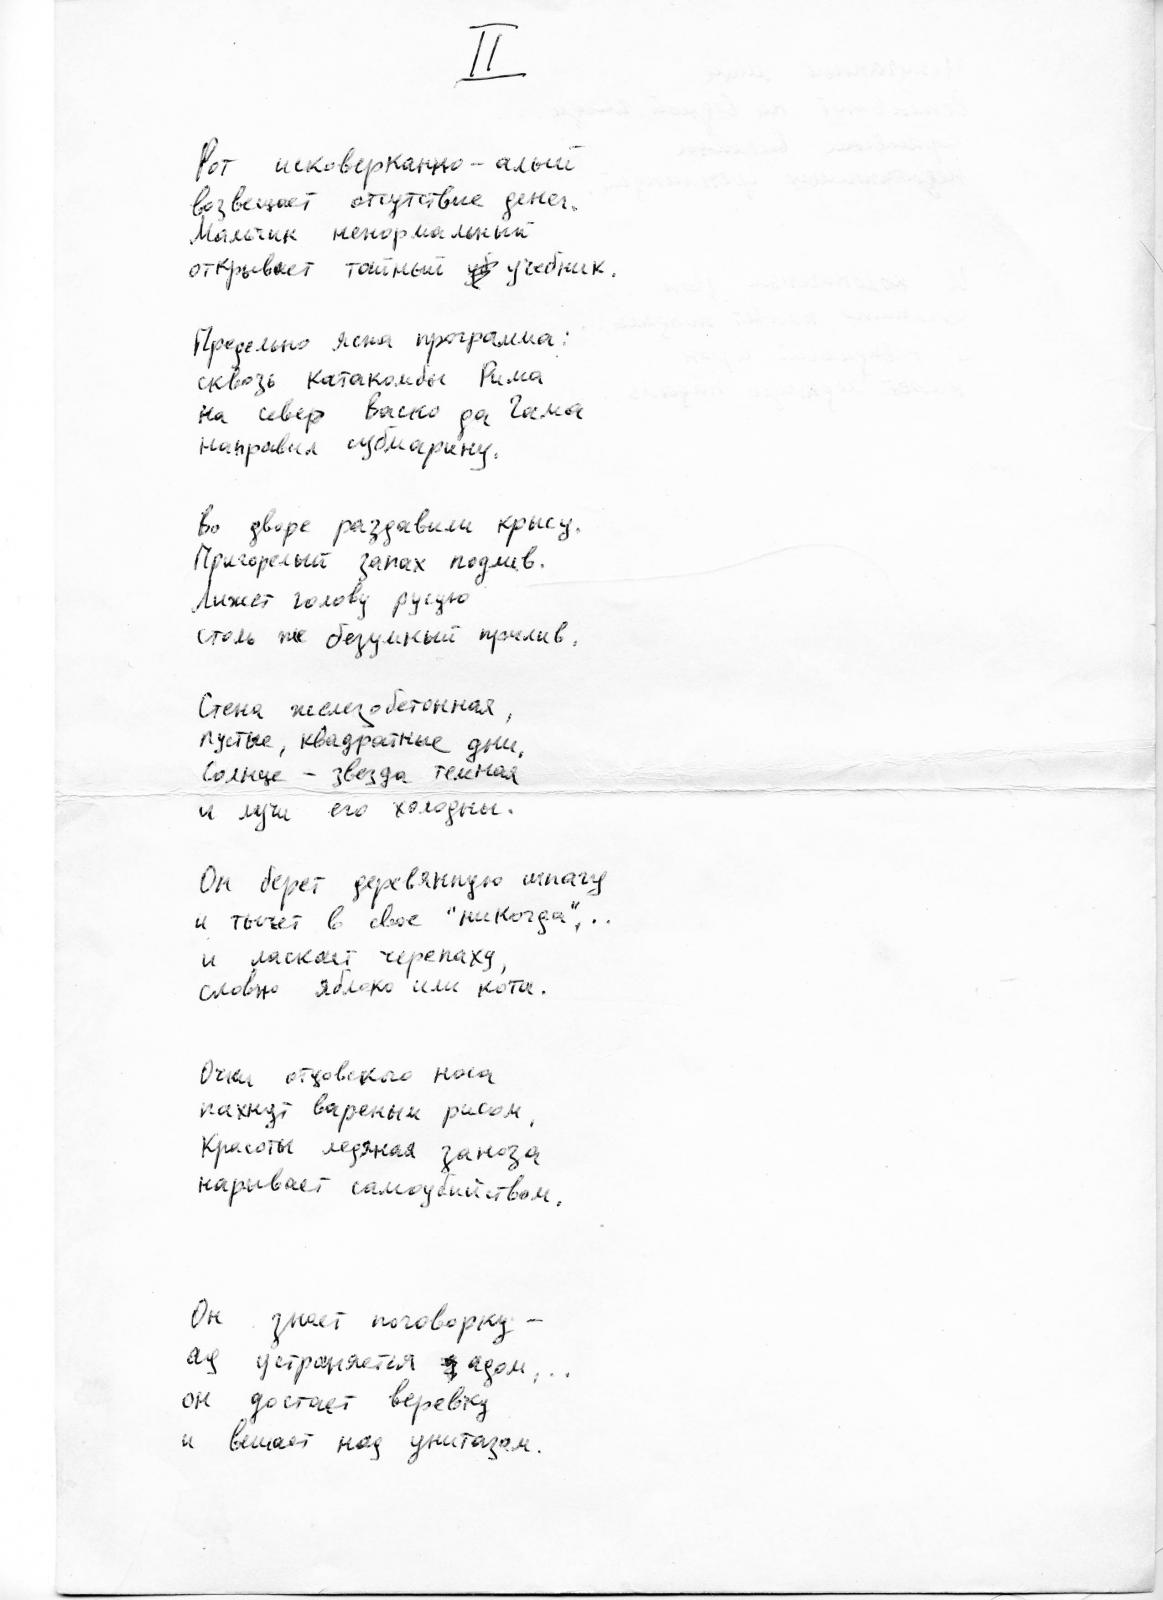 II
Рот исковерканно-алый
возвещает отсутствие денег.
Мальчик ненормальный
открывает тайный учебник.
Предельно ясна программа:
сквозь катакомбы Рима
на север Васко да Гама
направил субмарину.
Во дворе раздавили крысу.
Пригорелый запах подлив.
Лижет голову русую
столь же безумный прилив.
Стена железобетонная,
пустые, квадратные дни,
Солнце - звезда темная
и лучи его холодны.
Он берет деревянную шпагу
и тычет в свое "никогда",..
и ласкает черепаху,
словно яблоко или кота.
Очки отцовского носа
пахнут вареным рисом,
Красоты ледяная заноза
нарывает самоубийством.
Он знает поговорку -
ад устраняется адом,..
он достает веревку
и вешает над унитазом.